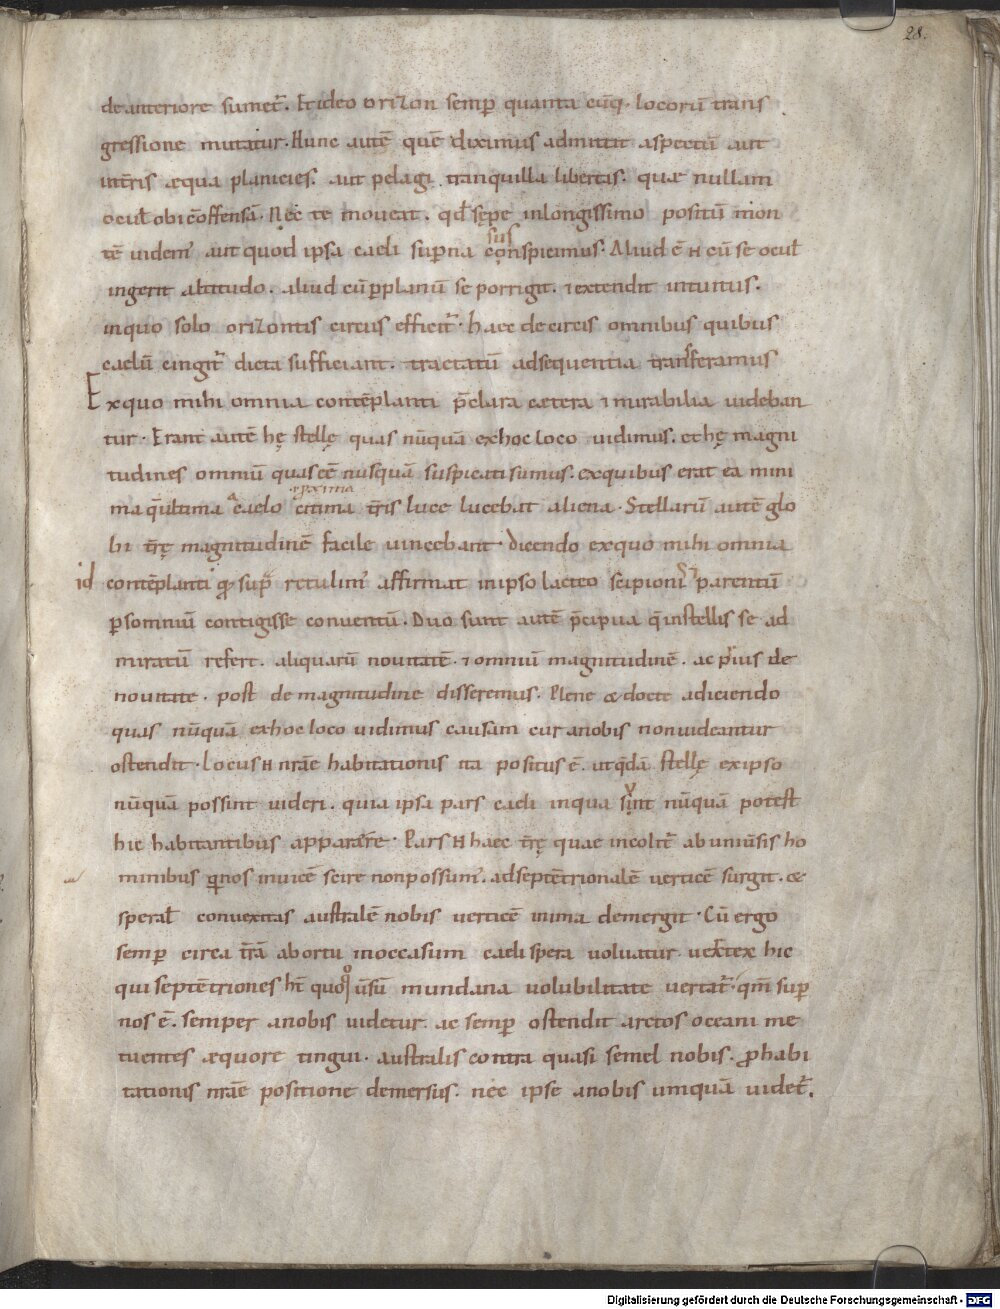 28.
de anteriore sumet᷑. Et ideo orizon semp̄ quanta cūq; locorū trans
gressione mutatur. Hunc autē quē diximus admittit aspectū aut
intr̄is æqua planicies. aut pelagi tranquilla libertas. quæ nullam
ocul̄ obicͥ offensā. Nec te moueat. qđ sępe inlongissimo positū mon
tē uidem᷒ aut quod ipsa caeli sup̄na conspicimus. Aliud ē n̄ cū se ocul̄
sus
ingerit altitudo. aliud cū p̱planū se porrigit. ⁊ extendit intuitus.
inquo solo orizontis circus efficit᷑. haec de circis omnibus quibus
caelū cingit᷑ dicta sufficiant. tractatū adsequentia transferamus
Exquo mihi omnia contēplanti p̄clara cætera ⁊ mirabilia uideban
tur. Erant autē hę stellę quas nūquā exhoc loco uidimus. et hę magni
tudines omniū quas eē nusquā suspicati sumus. exquibus erat ea mini
ma q̄ ultima a caelo citima tr̄is luce lucebat aliena. Stellarū autē glo
proxima
bi tr̄ę magnitudinē facile uincebant. Dicendo exquo mihi omnia
id contēplanti qđ sup̄ retulim᷒ affirmat inipso lacteo scipioni parentū
p̱ somniū contigisse conuentū. Duo sunt autē p̄cipua q̄ instellis se ad
miratū refert. aliquarū nouitatē. ⁊ omniū magnitudinē. ac p̱ius de
nouitate. post de magnitudine disseremus. Plene & docte adiciendo
quas nūquā exhoc loco uidimus causam cur anobis nonuideantur
ostendit. Locus n̄ nr̄æ habitationis ita positus ē. ut q̄dā stellę exipso
nūquā possint uideri. quia ipsa pars caeli inqua sunt nūquā potest
hic habitantibus apparere. Pars n̄ haec tr̄ę quae incolit᷑ ab uniūsis ho
minibus q̄ nos inuicē scire nonpossum᷒. adseptētrionalē uerticē surgit. &
speral̄ conuexitas australē nobis uerticē inima demergit. Cū ergo
semp̄ circa tr̄ā abortu inoccasum caeli spera uoluatur. uertex hic
qui septētriones ht̄ quoq; ūsū mundana uolubilitate uertat᷑. qm̄ sup̄
nos ē. semper anobis uidetur. ac semp̄ ostendit arctos oceani me
tuentes æquore tingui. australis contra quasi semel nobis. ꝓ habi
tationis nr̄æ positione demersus. nec ipse anobis umquā uidet᷑.
Digitalisierung gefördert durch die Deutsche Forschungsgemeinschaft - DFG